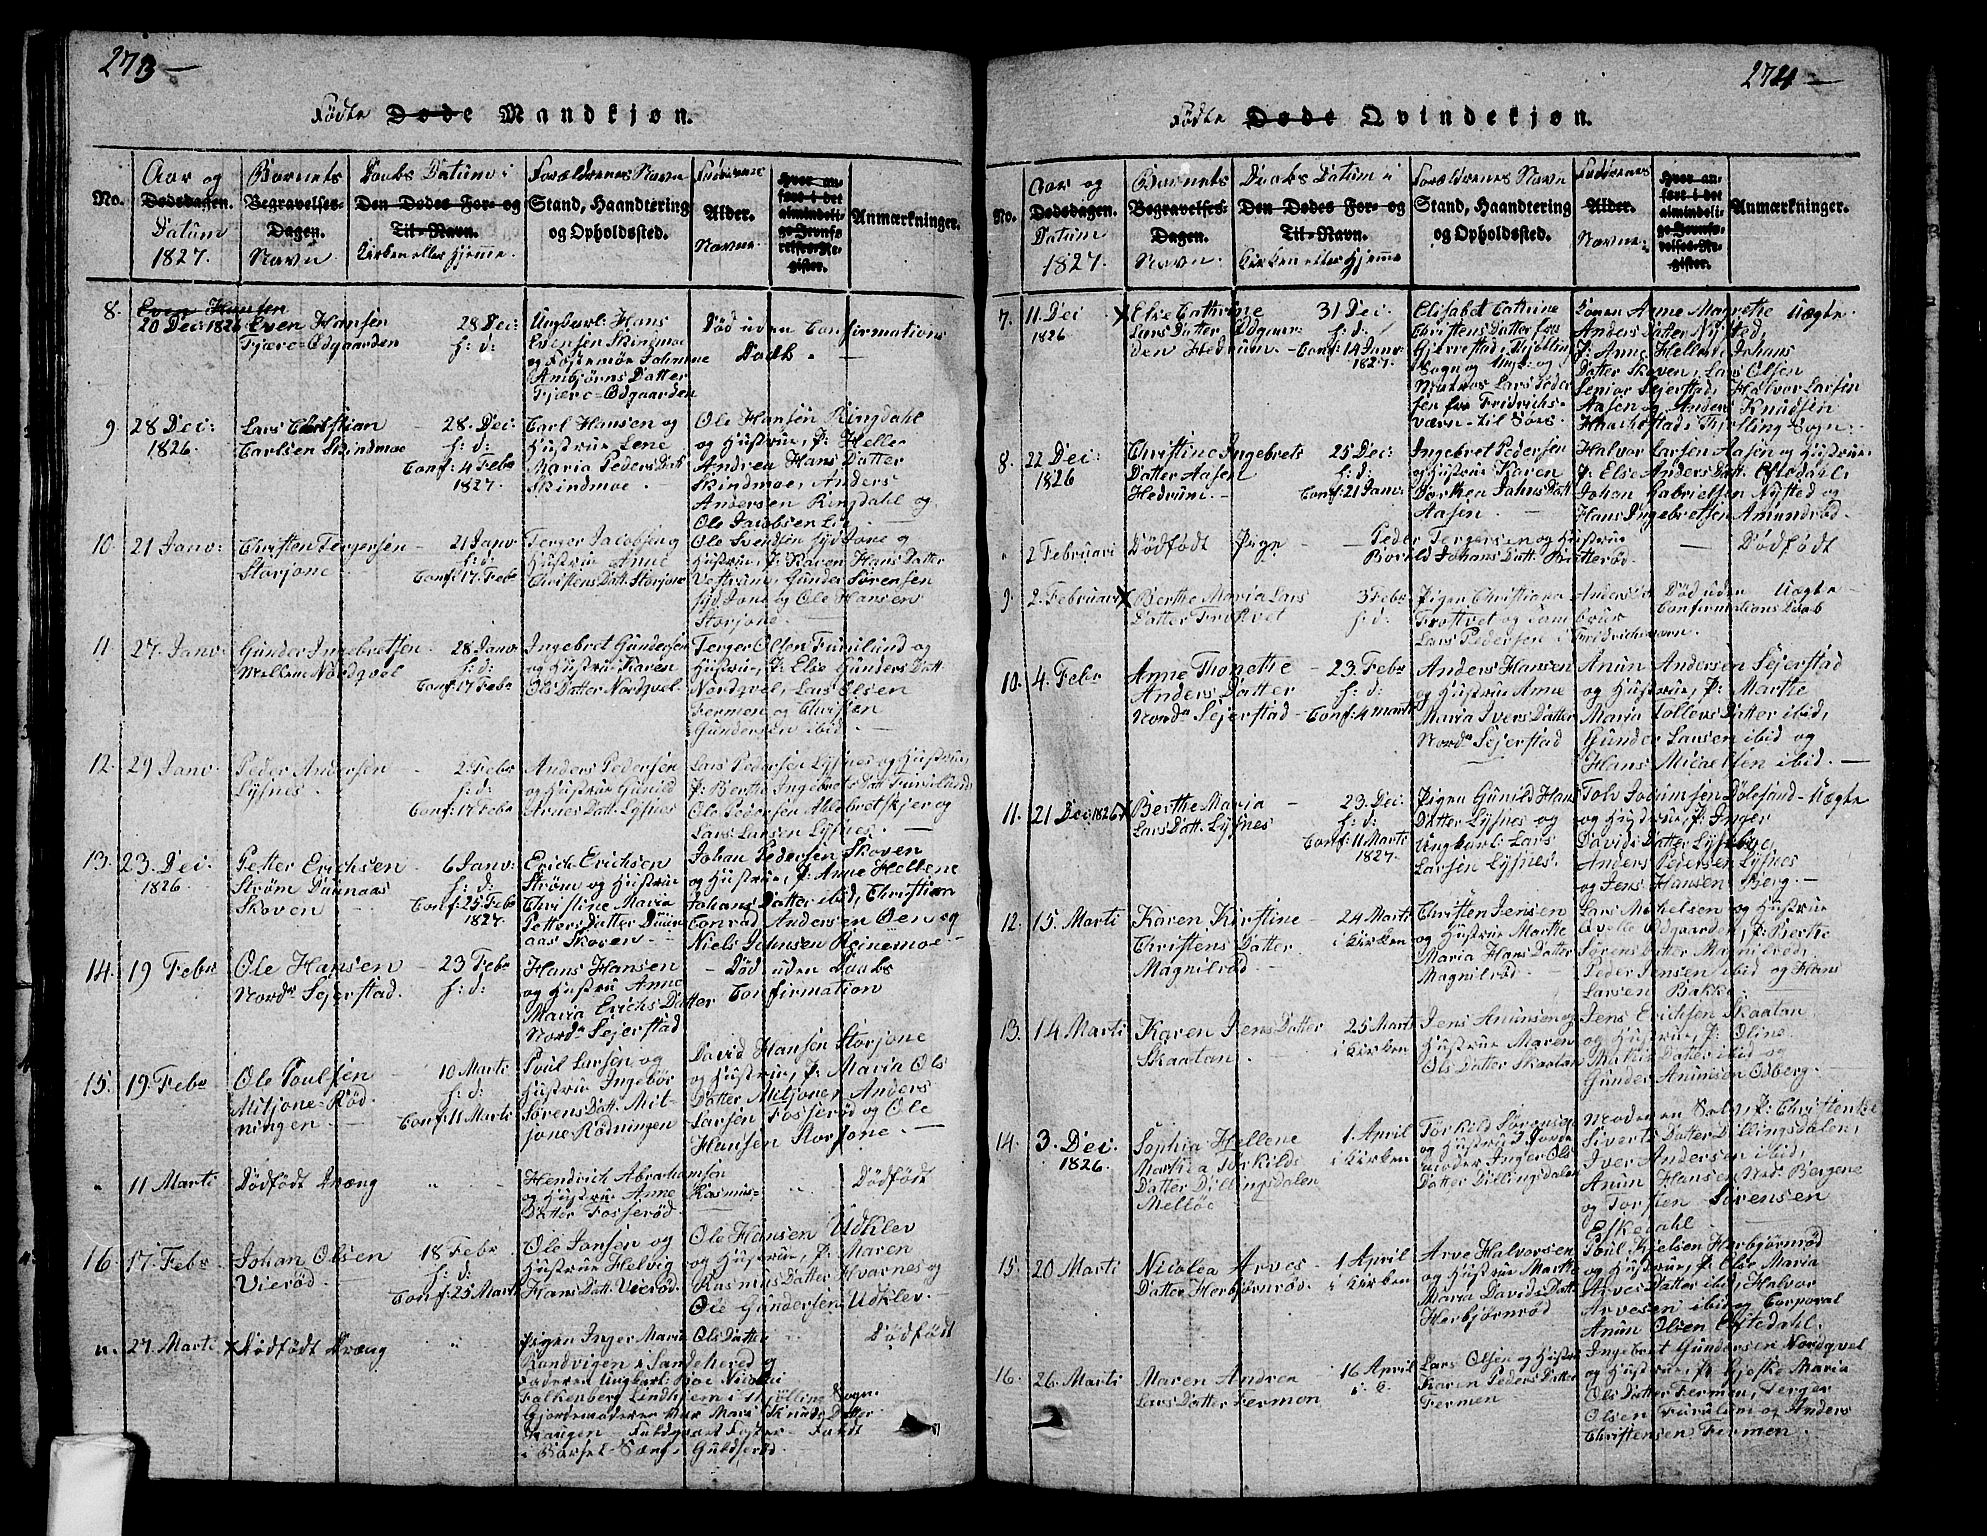 273 —
Fødte Døde Mandkjøn.
No.
Aar og
Dødsdagen.
Datum
1827.
Barnets
Begravelses-
Dagen.
Navn
Daabs Datum i
Den Dødes For- og
Til-Navn.
Kirken eller Hjemme.
Forældrenes Navn
Stand, Haandtering
og Opholdssted.
Faddrenes
Alder.
Navne.
Hvor an-
føre i det
almindeli-
ge Jevnfø-
relses-Re-
gister.
Anmærkninger.
8.
Even Hansen
20 Dec: 1826
Even Hansen
Tjære-Odgaarden
28 Dei:
h: d:
Ungkarl: Hans
Evensen Skindmoe
og Fæstemøe Johanne
Ambjørns Datter
Tjære-Odgaarden
Død uden Confirmations
Daab. —
9
28 Dei:
1826.
Lars Christian
Carlsen Skindmoe
28. Dei:
h: d:
Conf: 4 Febr
1827.
Carl Hansen og
Hustrue Lene
Maria Peders Datt
Skindmoe. —
Ole Hansen Ringdahl
og Hustrue, P: Helle
Andrea Hans Datter
Skindmoe, Anders
Andersen Ringdahl og
Ole Jacobsen Lie —
10.
21 Janv:
Christen Tergersen
Storjone
21 Janv
h: d:
Conf: 17. Febr
Terger Jacobsen og
Hustrue Anne
Christens Datt: Storjone
Ole Svendsen Syd Jone og
Hustrue, P: Karen Hans Datter
Vestrum, Gunder Sørensen
Syd Jone og Ole Hansen
Storjone. —
11
27. Janv
Gunder Ingebretsen
Mellem Nordqvel
28 Janv
h: d:
Conf: 17 Febr
Ingebret Gundersen
og Hustrue Karen
Ols Datter Nordqvel.
Terger Olsen Furulund og
Hustrue, P: Else Gunders Datt
Nordqvel, Lars Olsen
Fermen og Christen
Gundersen ibid. —
12.
29 Janv
Peder Andersen
Lysnes
2 Febr
h: d:
Conf: 17 Febr
Anders Pedersen
og Hustrue Gunild
Arnes Datt: Lysnes
Lars Pedersen Lysnes og Hustrue,
P: Berthe Ingebrets Datt Furulund,
Ole Pedersen Allebretskjer og
Lars Larsen Lysnes. —
13.
23. Dei:
1826.
Petter Erichsen
Strøm Duunaas
Skoven —
6 Janv:
h: d:
Conf: 25 Febr
1827.
Erich Erichsen
Strøm og Hustrue
Christine Maria
Petters Datter Duun-
aas Skoven. —
Johan Pedersen Skoven
og Hustrue, P: Anne Hellene
Johans Datter ibid, Christian
Conrad Andersen Øen og
Niels Johnsen Reinemoe —
14.
19 Febr
Ole Hansen
Nordre Sejerstad.
23 Febr
h: d:
Hans Hansen
og Hustrue Anne
Maria Erichs Datter
Nordre Sejerstad
— Død uden Daabs
Confirmation
15.
19. Febr
Ole Poulsen
Mitjone-Rød
ningen —
10 Marti
h: d:
Conf: 11 Marti
Poul Larsen og
Hustrue Ingebor
Sørens Datt: Mit-
jone-Rødningen
David Hansen Storjone
og Hustrue, P: Maria Ols
Datter Mitjone, Anders
Larsen Fosserød og Ole
Hansen Storjone. —
"
11 Marti
Dødfødt Dræng
Hendrich Abrahamsen
og Hustrue Anne Rasmus-
Datter Fosserød
Dødfødt
16.
17. Febr
Johan Olsen
Vierød.
18 Febr.
h: d:
Conf: 25 Marti
Ole Jansen og
Hustrue Helvig
Hans Datt: Vierød.
Ole Hansen Udklev
og Hustrue, P: Maren
Rasmus Datter Hvarnes og
Ole Gundersen Udklev. —
"
27 Marti
X Dødfødt Dræng
Pigen Inger Marie Ols Datter
Randvigen i Sandeherred og
Faderen Ungkarl: Boe Nicolai
Falkenberg Lindhjem i Kjølling Sogn.
Gjordemoderen var Mari Knuds Datter
Haugen
i Barsel-Sæng, Guldserød.
Dødfødt
2724 —
Fødte Døde Qvindekjøn.
No.
Aar og
Dødsdagen.
Datum
1827.
Barnets
Begravelses-
Dagen.
Navn.
Daabs Datum i
Den Dødes For- og
Til-Navn.
Kirken eller Hjemme
Forældrenes Navn
Stand, Haandtering
og Opholdssted.
Faddrenes
Alder.
Navne.
Hvor an-
føre i det
almindeli-
ge Jevnfø-
relses-Re-
gister.
Anmærkninger.
7.
11. Dei
1826
X Else Cathrine
Lars Datter Odgaar-
den Hedrum. —
31 Dei:
h: d:
Conf: 14 Janv:
1827.
Elisabet Cathrine
Christens Datter fra
Gjerrestad, Kjølling
Sogn og Ungk: og
Matros Lars Peder
sen fra Fridrichs-
værn- til Søes.
Konen Anne Magrethe
Anders Datter Nysted,
P: Anne Hellene Johans
Datter Skoven, Lars Olsen
Senior Sejerstad, Halvor Larsen
Aasen og Anders Knudsen
Haachestad i Kjørling Sogn.
Uægte
8.
22 Dei:
1826
Christine Ingebrets
Datter Aasen
Hedrum. —
25 Dei:
h: d:
Conf: 21 Janv:
Ingebret Pedersen
og Hustrue Karen
Dorthea Jahns Datt
Aasen. —
Halvor Larsen Aasen og Hustrue
P: Else Anders Datt: Eftedahl,
Johan Gabrielsen Nysted og
Hans Ingebretsen Amundrød.
"
2 Februari
Dødfødt Pige
Peder Tergersen og Hustrue
Borild Johans Datt: Bratterød.
Dødfødt
9.
2. Februari
X Berthe Maria Lars
Datter Trostvet
3 Febr
h: d:
Pigen Christiane Anders Dr
Trostvet og Tambour
Lars Pedersen i Fredrichsværn.
Død uden
Confirmations Daab
Uægte
10.
4. Febr
Anne Thonette
Anders Datter
Nordre Sejerstad —
23. Febr
h: d:
Conf: 4 Marti
Anders Hansen
og Hustrue Anne
Maria Ivers Datter
Nordre Sejerstad
Anun Andersen Sejerstad
og Hustrue, P: Marthe
Maria Tollevs Datter ibid,
Gunder Larsen ibid og
Hans Micaelsen ibid. —
11.
21 Dei 1826
X Berthe Maria
Lars Datt: Lysnes
23. Dei:
h: d:
Conf: 11 Marti
1827.
Pigen Gunild Hans
Datter Lysnes og
Ungkarl: Lars
Larsen Lysnes.
Tolv Johnmsen Dølesand
og Hustrue, P: Inger
Davids Datter Lysebye,
Anders Pedersen Lysnes
og Jens Hansen Bjerg. —
Uægte
12.
15. Marti
Karen Kirstine
Christens Datter
Magnilrød
24 Marti
i Kirken
Christen Jensen
og Hustrue Marthe
Maria Hans Datter
Magnilrød —
Lars Michelsen og Hustrue
Qvelle Odgaarden, P: Berthe
Sørens Datter Magnilrød,
Peder Jensen ibid og Hans
Larsen Bakke. —
13.
14 Marti
Karen Jens Datter
Skaatan.
25 Marti
i Kirken
Jens Anunsen og
Hustrue Maren
Ols Datter Skaatan
Jens Erichsen Skaatan
og Hustrue, P: Oline
Mathis Datter ibid og
Gunder Anunsen Odberg. —
14.
3. Dei:
1826.
Sophia Hellene
Martha Torkilds
Datter Dillingsdalen
Melløe
1. April
i Kirken
Torkild Sørensen
og Hustrue Jorde
moder Inger Ols
Datter Dillingsdalen
Moderen Selv, P: Christenke
Siverts Datter Dillingsdalen,
Iver Andersen ibid,
Anun Hansen Ned: Bergene
og Torsten Sørensen
Elkedahl. —
15.
20 Marti
Nicolea Arves-
Datter Herbjørnrød.
1 April
i Kirken
Arve Halvorsen
og Hustrue Marthe
Maria Davids Datt
Herbjørnrød
Poul Kjelsen Herbjørnrød
og Hustrue, P: Else Maria
Arves Datter ibid, Halvor
Arvesen ibid og Corporal
Anun Olsen Eftedahl.
16.
26. Marti
Maren Andrea
Lars Datter Fermen
16 April
i K.
Lars Olsen og Hustrue
Karen Peders Datter
Fermen
Ingebret Gundersen Nordqvel
og Hustrue, P: Gjeske Maria
Ols Datter Fermen, Terger
Olsen Furulum og Anders
Christensen Fermen.